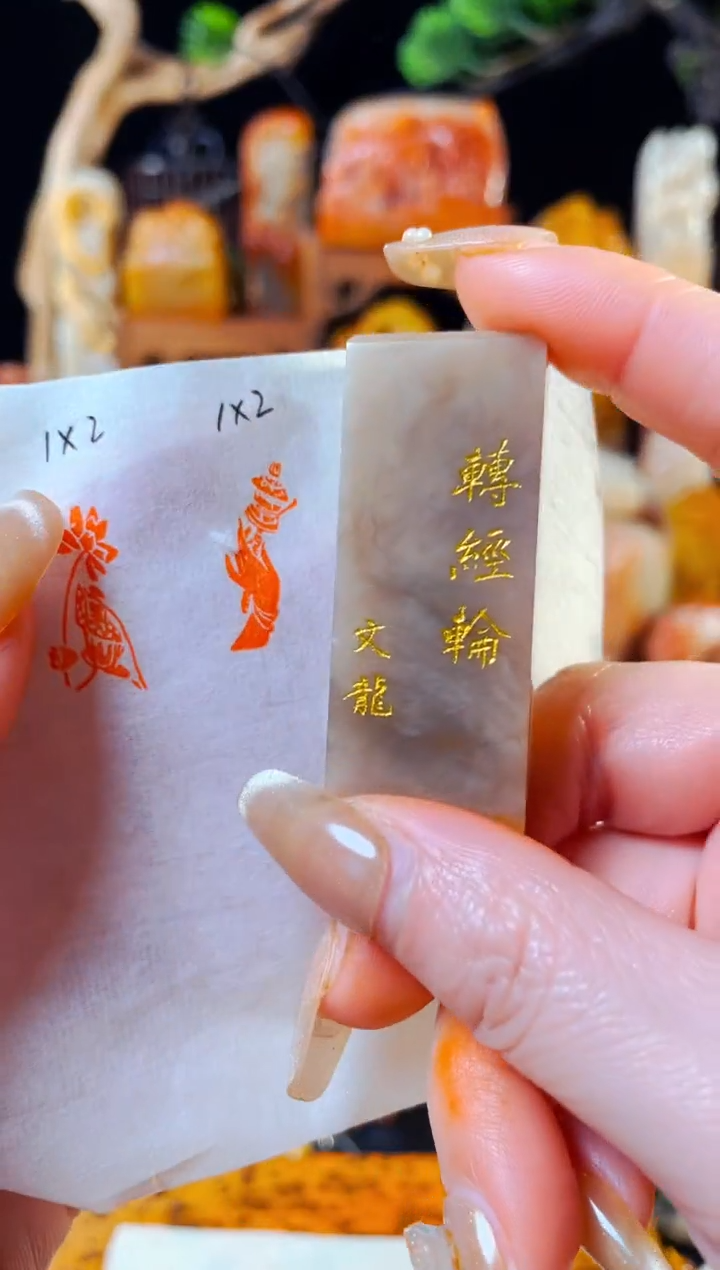 1X2
1X2
轉經輪
文龍